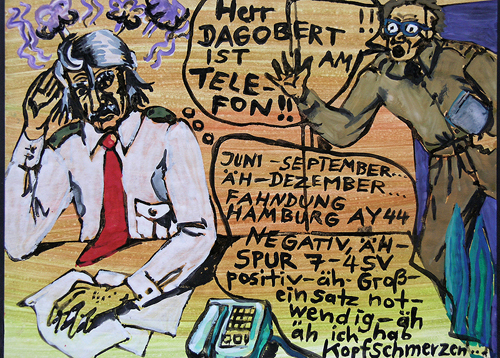 Herr
DAGOBERT
IST AM
TELE-
FON!!
!!
JUNI-SEPTEMBER...
ÄH-DEZEMBER...
FAHNDUNG
HAMBURG AY 44
NEGATIV, ÄH-
SPUR 7-45V
positiv-äh-Groß-
einsatz not-
wendig-äh
äh ich hab
KopfSchmerzen...